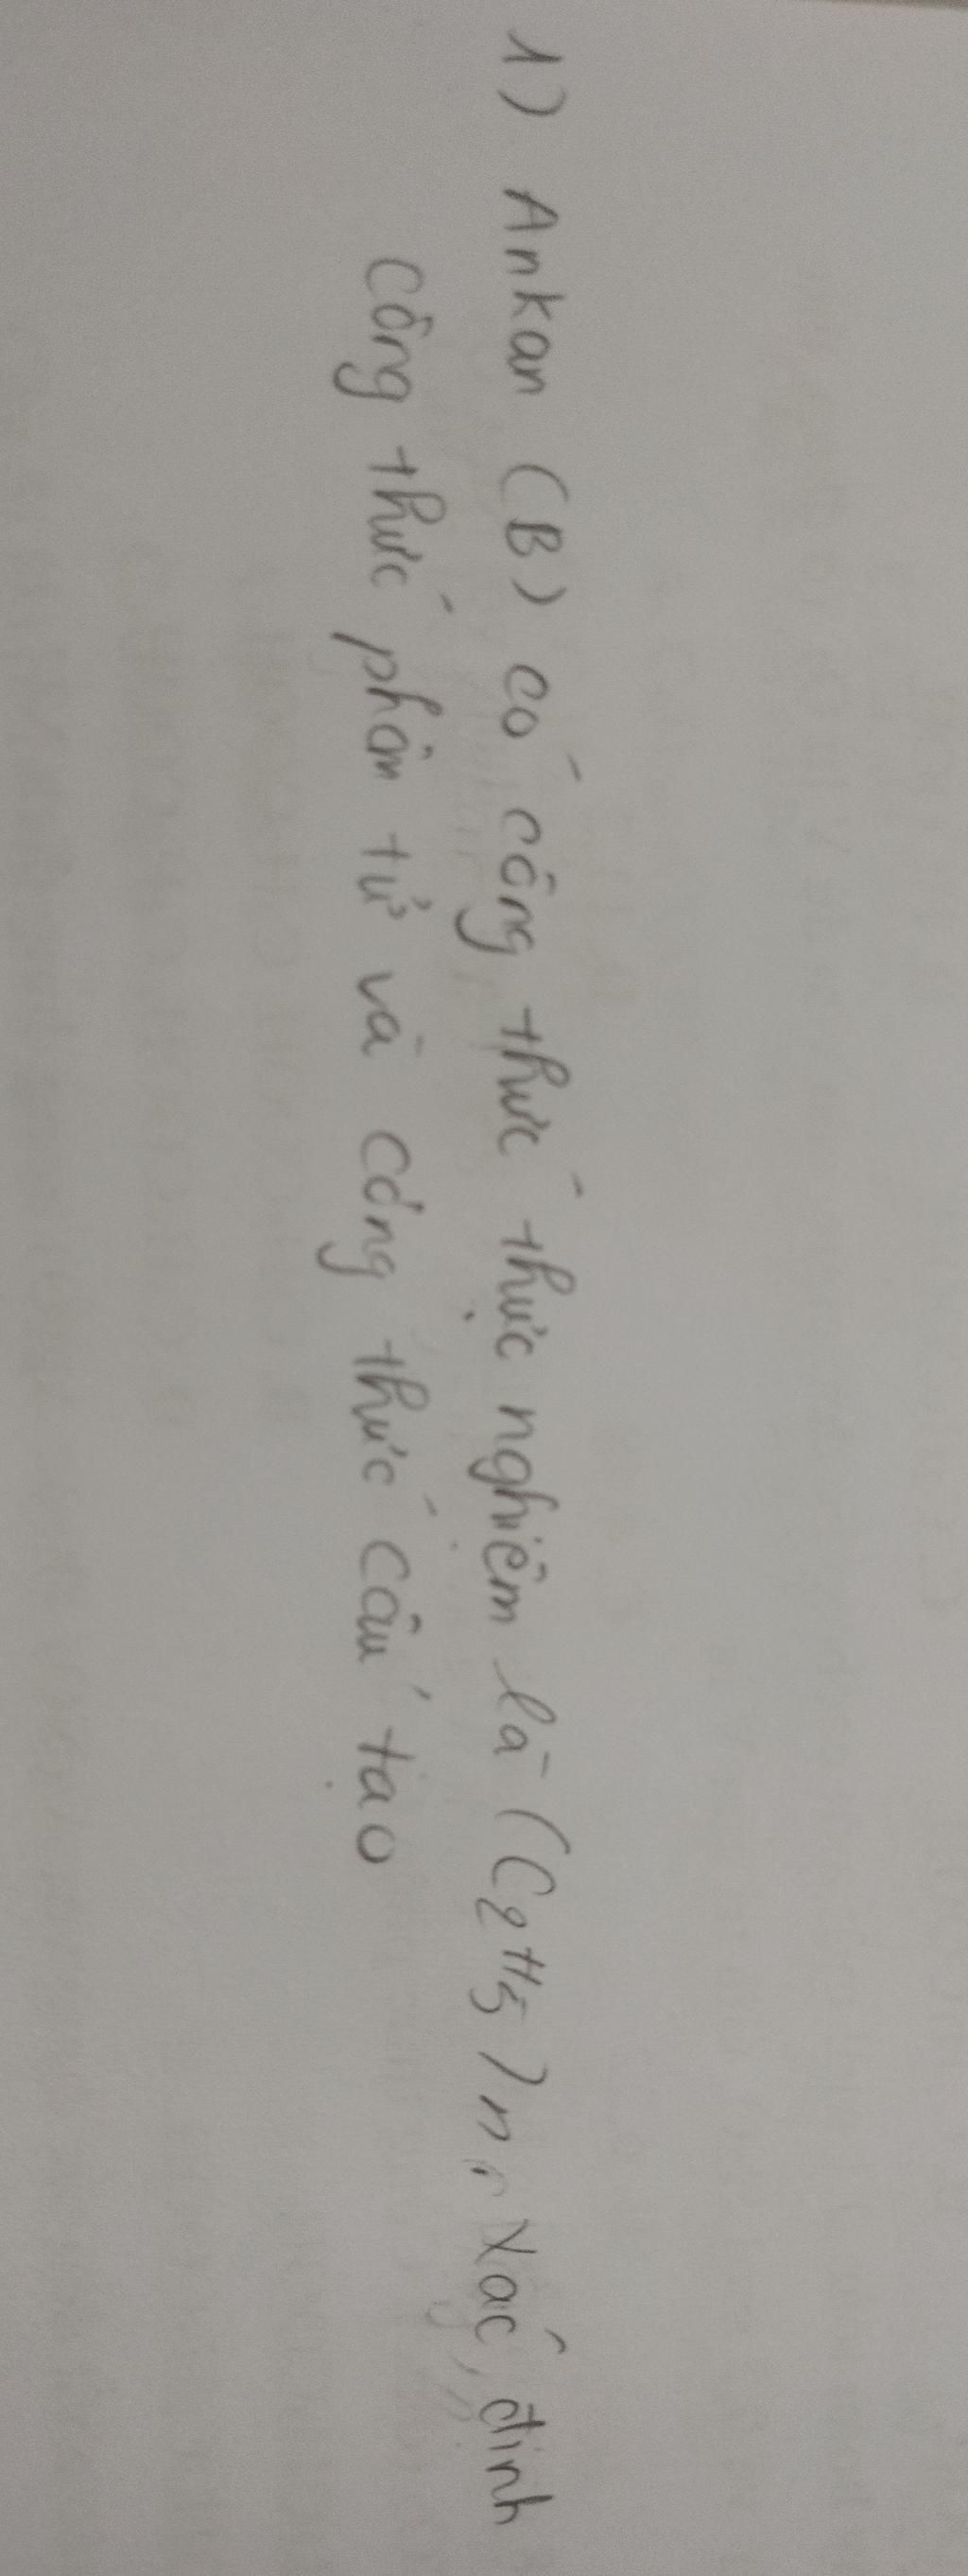 1) Ankan (B) có công thức thực nghiệm là (C₂H₅)n, Xác định
công thức phân tử và công thức cấu tạo